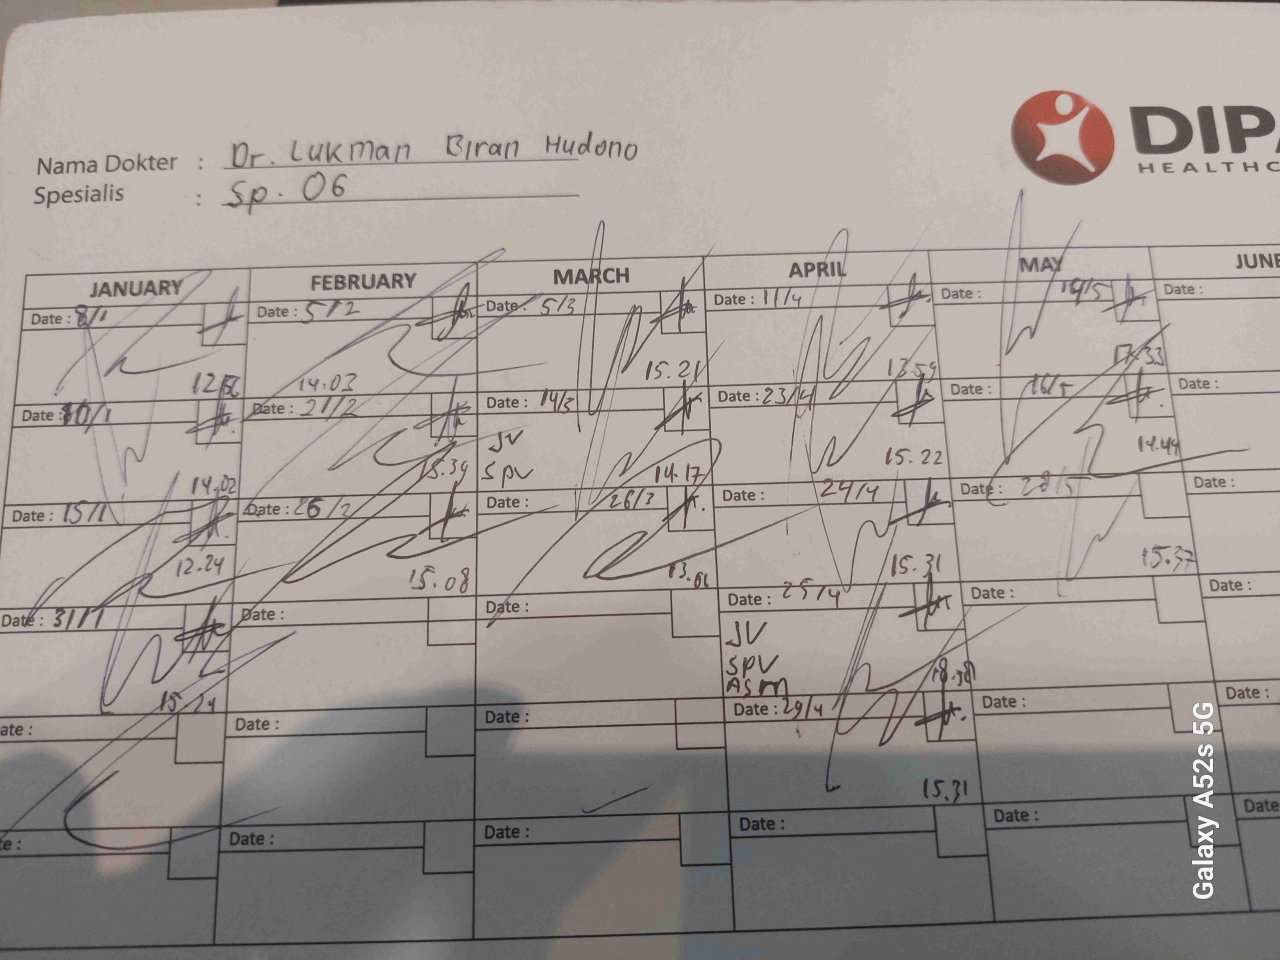 DIPA
HEALTHC
Nama Dokter : Dr. Lukman Biran Hudono
Spesialis : Sp. OG
JANUARY FEBRUARY MARCH APRIL MAY JUNE
Date : 8/1 Date : 5/2 Date : 5/3 Date : 11/4 Date : 14/5 Date :
14.03 15.21 13.59 17.33
Date : 10/1 Date : 21/2 Date : 14/3 Date : 23/4 Date : 16/5 Date :
JV
SPV
14.02 15.39 14.17 15.22 14.44
Date : 15/1 Date : 26/2 Date : 26/3 Date : 24/4 Date : 28/5 Date :
12.24 15.08 15.31 15.37
Date : 31/1 Date : Date : Date : 25/4 Date : Date :
JV
SPV
ASM
15.24 18.38
ate : Date : Date : Date : 29/4 Date : Date :
15.31
te : Date : Date : Date : Date : Date
Galaxy A52s 5G